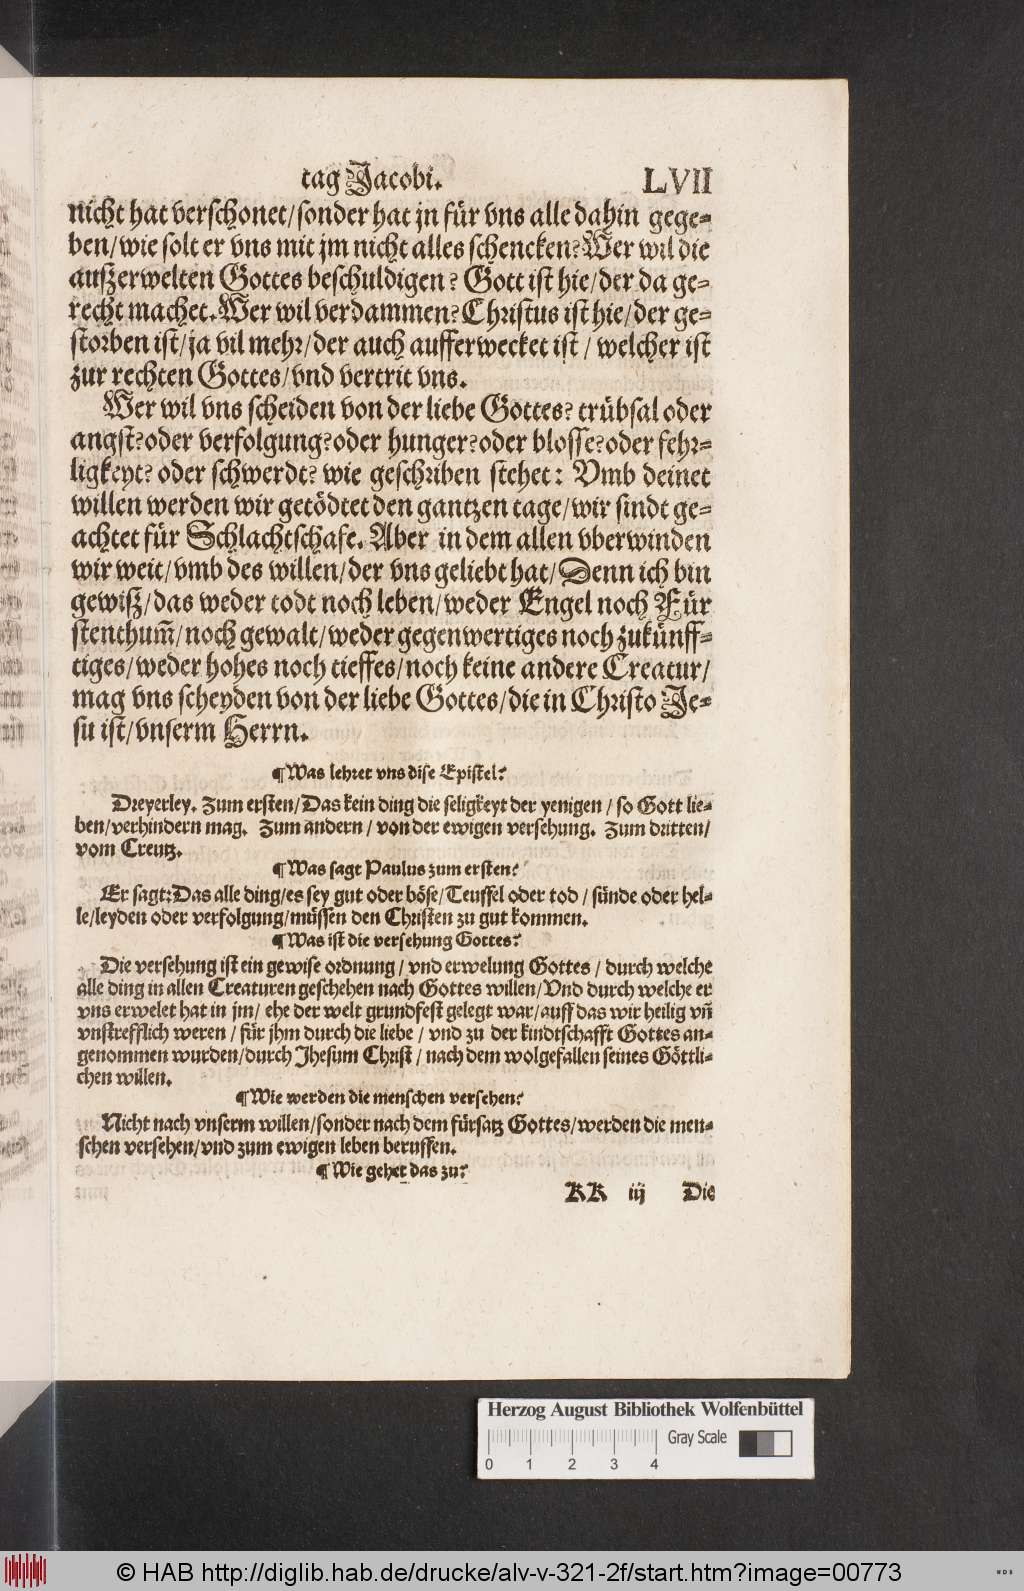 tag Jacobi. LVII
nicht hat verschonet/sonder hat jn für vns alle dahin gege-
ben/wie solt er vns mit jm nicht alles schencken? Wer wil die
außerwelten Gottes beschuldigen? Gott ist hie/der da ge-
recht machet. Wer wil verdammen? Christus ist hie/der ge-
storben ist/ja vil mehr/der auch aufferwecket ist / welcher ist
zur rechten Gottes/vnd vertrit vns.
Wer wil vns scheiden von der liebe Gottes? trübsal oder
angst? oder verfolgung? oder hunger? oder blosse? oder fehr-
ligkeyt? oder schwerdt? wie geschriben stehet: Vmb deinet
willen werden wir getödtet den gantzen tage/wir sindt ge-
achtet für Schlachtschafe. Aber in dem allen vberwinden
wir weit/vmb des willen/der vns geliebt hat/Denn ich bin
gewiß/das weder todt noch leben/weder Engel noch Für
stenthum̃/noch gewalt/weder gegenwertiges noch zukünff-
tiges/weder hohes noch tieffes/noch keine andere Creatur/
mag vns scheyden von der liebe Gottes/die in Christo Je-
su ist/vnserm Herrn.
¶ Was lehret vns dise Epistel?
Dreyerley. Zum ersten/Das kein ding die seligkeyt der yenigen / so Gott lie-
ben/verhindern mag. Zum andern / von der ewigen versehung. Zum dritten/
vom Creutz.
¶ Was sagt Paulus zum ersten?
Er sagt: Das alle ding/es sey gut oder böse/Teuffel oder tod / sünde oder hel-
le/leyden oder verfolgung/müssen den Christen zu gut kommen.
¶ Was ist die versehung Gottes?
Die versehung ist ein gewise ordnung / vnd erwelung Gottes / durch welche
alle ding in allen Creaturen geschehen nach Gottes willen/Vnd durch welche er
vns erwelet hat in jm/ ehe der welt grundfest gelegt war/auff das wir heilig vñ
vnstrefflich weren / für jhm durch die liebe / vnd zu der kindtschafft Gottes an-
genommen wurden/durch Jhesum Christ / nach dem wolgefallen seines Göttli-
chen willen.
¶ Wie werden die menschen versehen?
Nicht nach vnserm willen/sonder nach dem fürsatz Gottes/werden die men-
schen versehen/vnd zum ewigen leben beruffen.
¶ Wie gehet das zu?
KK iij Die
Herzog August Bibliothek Wolfenbüttel
Gray Scale
0 1 2 3 4
© HAB http://diglib.hab.de/drucke/alv-v-321-2f/start.htm?image=00773